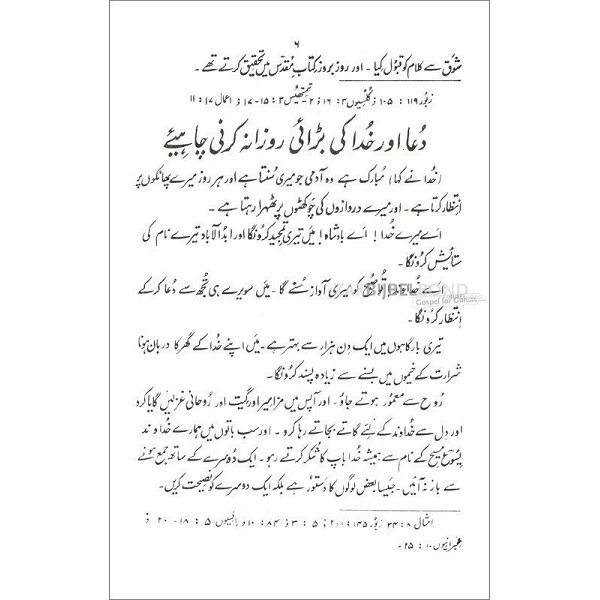 ۶
شوق سے کلام کو قبول کیا۔ اور روز بروز کتابِ مُقدّس میں تحقیق کرتے تھے۔
زبُور ۱۱۹ : ۱۰۵ ؛ کُلسیّوں ۳ : ۱۶ ؛ ۲ تیمتھیُس ۳ : ۱۵-۱۷ ؛ اعمال ۱۷ : ۱۱
دُعا اور خُدا کی بڑائی روزانہ کرنی چاہیئے
(خُدا نے کہا) مُبارک ہے وہ آدمی جو میری سُنتا ہے اور ہر روز میرے پھاٹکوں پر
اِنتظار کرتا ہے۔ اور میرے دروازوں کی چوکھٹوں پر ٹھہرا رہتا ہے۔
اَے میرے خُدا! اَے بادشاہ! میں تیری تمجید کرُونگا اور ابدُالآباد تیرے نام کی
ستایش کرُونگا۔
اَے خُداوند تُو صُبح کو میری آواز سُنے گا۔ میں سویرے ہی تُجھ سے دُعا کر کے
اِنتظار کرُونگا۔
تیری بارگاہوں میں ایک دِن ہزار سے بہتر ہے۔ میں اپنے خُدا کے گھر کا دربان ہونا
شرارت کے خیموں میں بسنے سے زیادہ پسند کرُونگا۔
رُوح سے معمُور ہوتے جاؤ۔ اور آپس میں مزامیر اور گیت اور رُوحانی غزلیں گایا کرو
اور دِل سے خُداوند کے لِئے گاتے بجاتے رہا کرو۔ اور سب باتوں میں ہمارے خُداوند
یسُوع مسیح کے نام سے ہمیشہ خُدا باپ کا شُکر کرتے رہو۔ ایک دُوسرے کے ساتھ جمع ہونے
سے باز نہ آئیں۔ جیسا بعض لوگوں کا دستُور ہے بلکہ ایک دُوسرے کو نصیحت کریں۔
امثال ۸ : ۳۴ زبُور ۱۴۵ : ۱، ۲ ؛ ۵ : ۳ ؛ ۸۴ : ۱۰ ؛ اِفسیوں ۵ : ۱۸-۲۰ ؛
عِبرانیوں ۱۰ : ۲۵۔
BIJBELBOND
Gospel for Guests